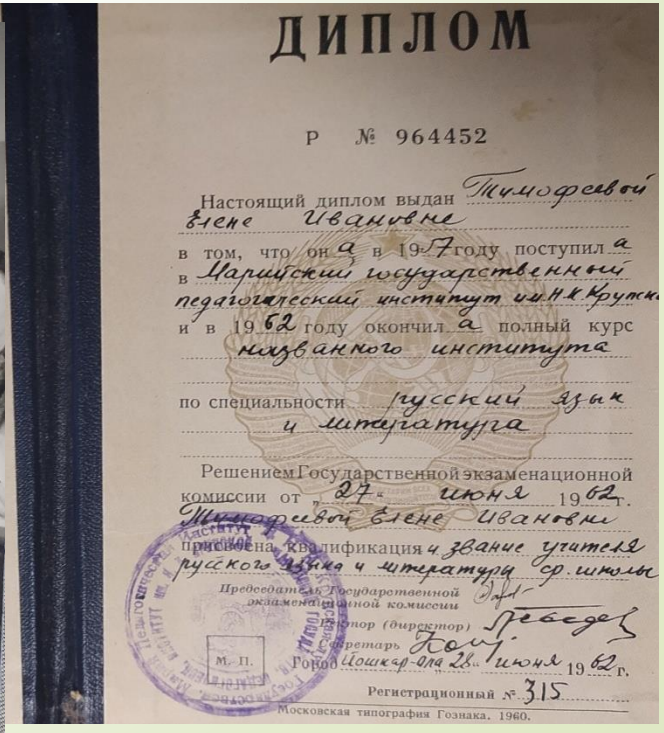 ДИПЛОМ
Р № 964452
Настоящий диплом выдан Тимофеевой
Елене Ивановне
в том, что он а в 1957 году поступил а
в Марийский государственный
педагогический институт им. Н.К. Крупск
и в 1962 году окончил а полный курс
названного института
по специальности русский язык
и литература
Решением Государственной экзаменационной
комиссии от „27“ июня 1962 г.
Тимофеевой Елене Ивановне
присвоена квалификация и звание учителя
русского языка и литературы ср. школы
Председатель Государственной
экзаменационной комиссии
Ректор (директор)
Секретарь
М. П.
Город Йошкар-Ола „28“ июня 1962 г.
Регистрационный № 315
Московская типография Гознака. 1960.